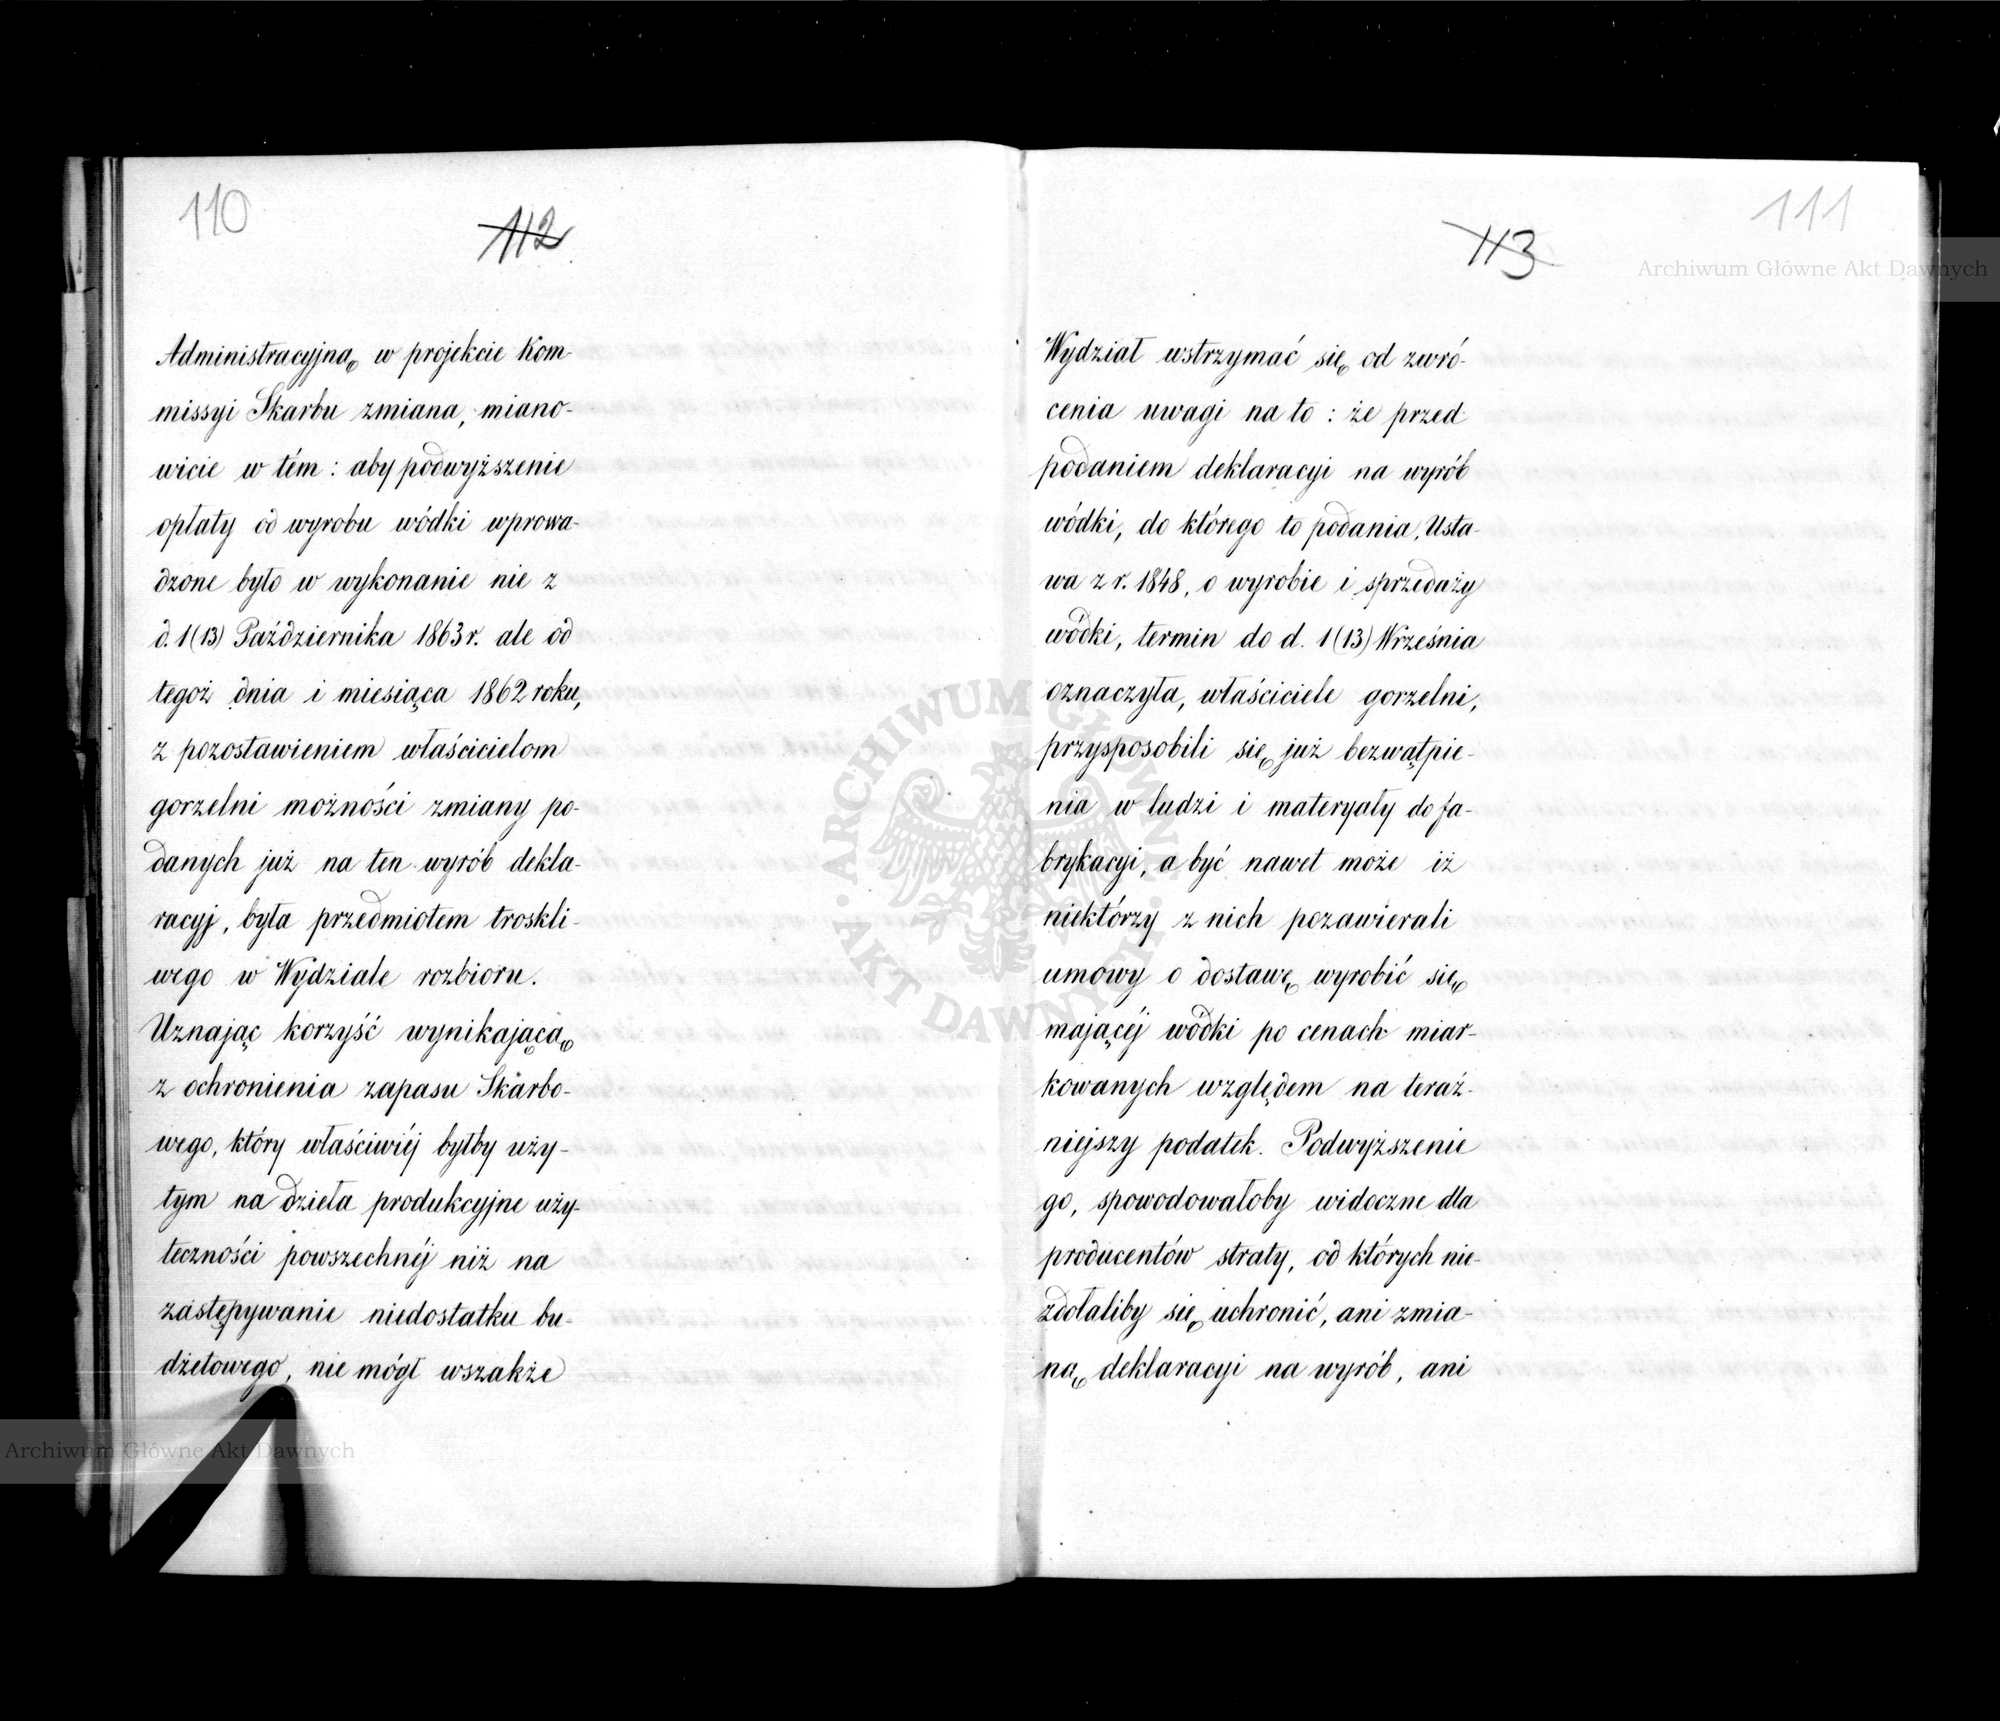 110
112
Administracyjną w projekcie Kom-
missyi Skarbu zmiana, miano-
wicie w tém: aby podwyższenie
opłaty od wyrobu wódki wprowa-
dzone było w wykonanie nie z
d. 1(13) Października 1863 r. ale od
tegoż dnia i miesiąca 1862 roku,
z pozostawieniem właścicielom
gorzelni możności zmiany po-
danych już na ten wyrób dekla-
racyj, była przedmiotem troskli-
wego w Wydziale rozbioru.
Uznając korzyść wynikającą
z ochronienia zapasu Skarbo-
wego, który właściwiéj byłby uży-
tym na dzieła produkcyjne uży-
teczności powszechnéj niż na
zastępywanie niedostatku bu-
dżetowego, nie mógł wszakże
113
111
Wydział wstrzymać się od zwró-
cenia uwagi na to: że przed
podaniem deklaracyi na wyrób
wódki, do którego to podania, Usta-
wa z r. 1848, o wyrobie i sprzedaży
wódki, termin do d. 1(13) Września
oznaczyła, właściciele gorzelni,
przysposobili się już bezwątpie-
nia w ludzi i materyały do fa-
brykacyi, a być nawet może iż
niektórzy z nich pozawierali
umowy o dostawę wyrobić się
mającéj wódki po cenach miar-
kowanych względem na teraź-
niejszy podatek. Podwyższenie
go, spowodowałoby widoczne dla
producentów straty, od których nie-
zdołaliby się uchronić, ani zmia-
ną deklaracyi na wyrób, ani
Archiwum Główne Akt Dawnych
ARCHIWUM GŁÓWNE AKT DAWNYCH
Archiwum Główne Akt Dawnych